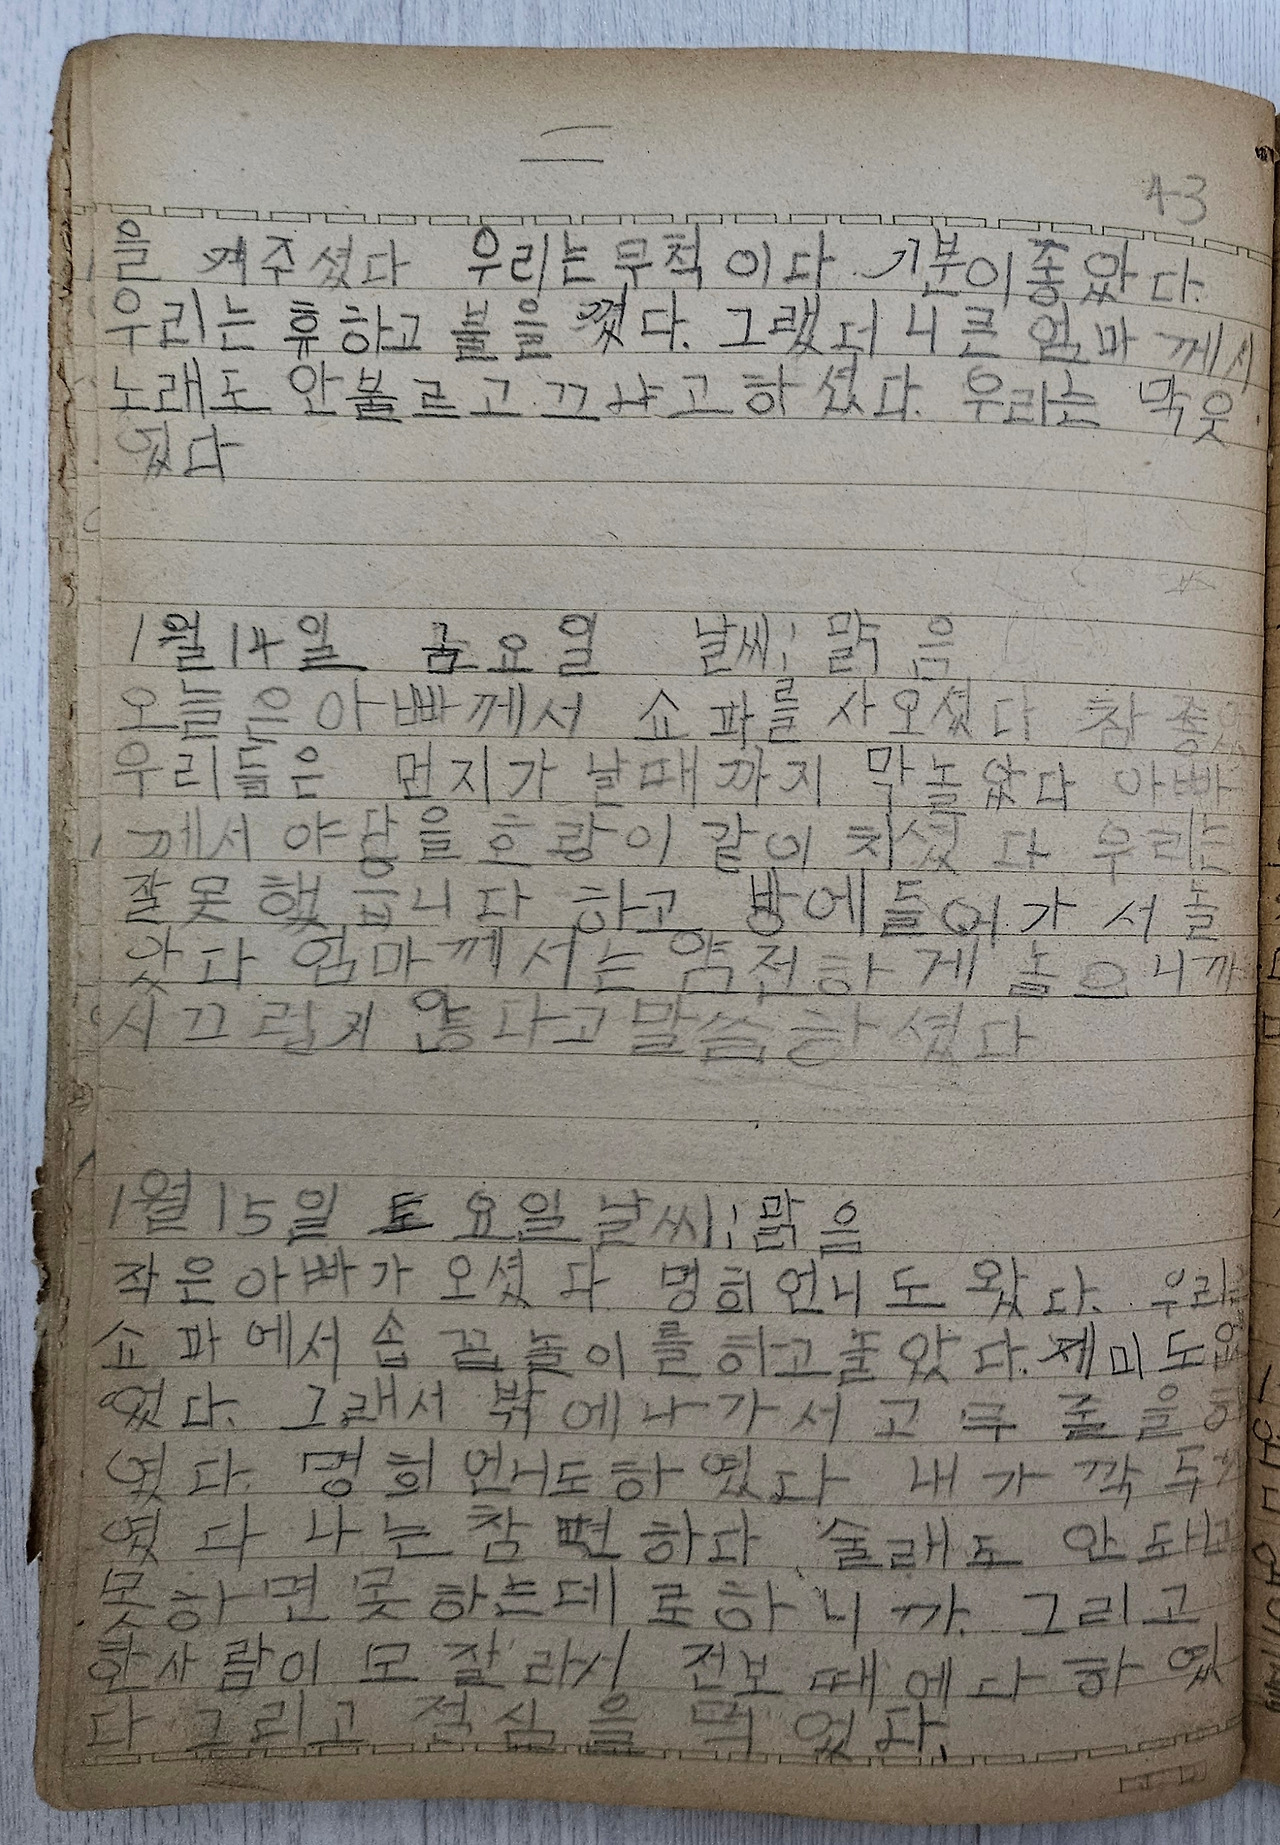 43
을 켜주셨다 우리는 무척이다 기분이 좋았다.
우리는 휴하고 불을 껐다. 그랬더니 큰 엄마께서
노래도 안불르고 끄냐고 하셨다. 우리는 막 웃
었다
1월 14일 금요일 날씨; 맑음
오늘은 아빠께서 쇼파를 사오셨다 참
우리들은 먼지가 날때까지 막놀았다 아빠
께서 야단을 호랑이 같이 치셨다 우리는
잘못했읍니다 하고 방에들어가서 놀
았다 엄마께서는 얌전하게 놀으니까
시끄럽지 않다고 말씀하셨다
1월 15일 토요일 날씨; 맑음
작은아빠가 오셨다 명희언니도 왔다. 우리는
쇼파에서 솝꼽놀이를 하고놀았다. 재미도
었다. 그래서 밖에나가서 고무줄을 하
였다. 명희 언니도하였다 내가 깍두기
였다 나는 참 편하다 술래도 안돼고
못하면 못하는데로하니까. 그리고
한사람이 모잘라서 전보때에다 하였
다 그리고 점심을 먹었다.